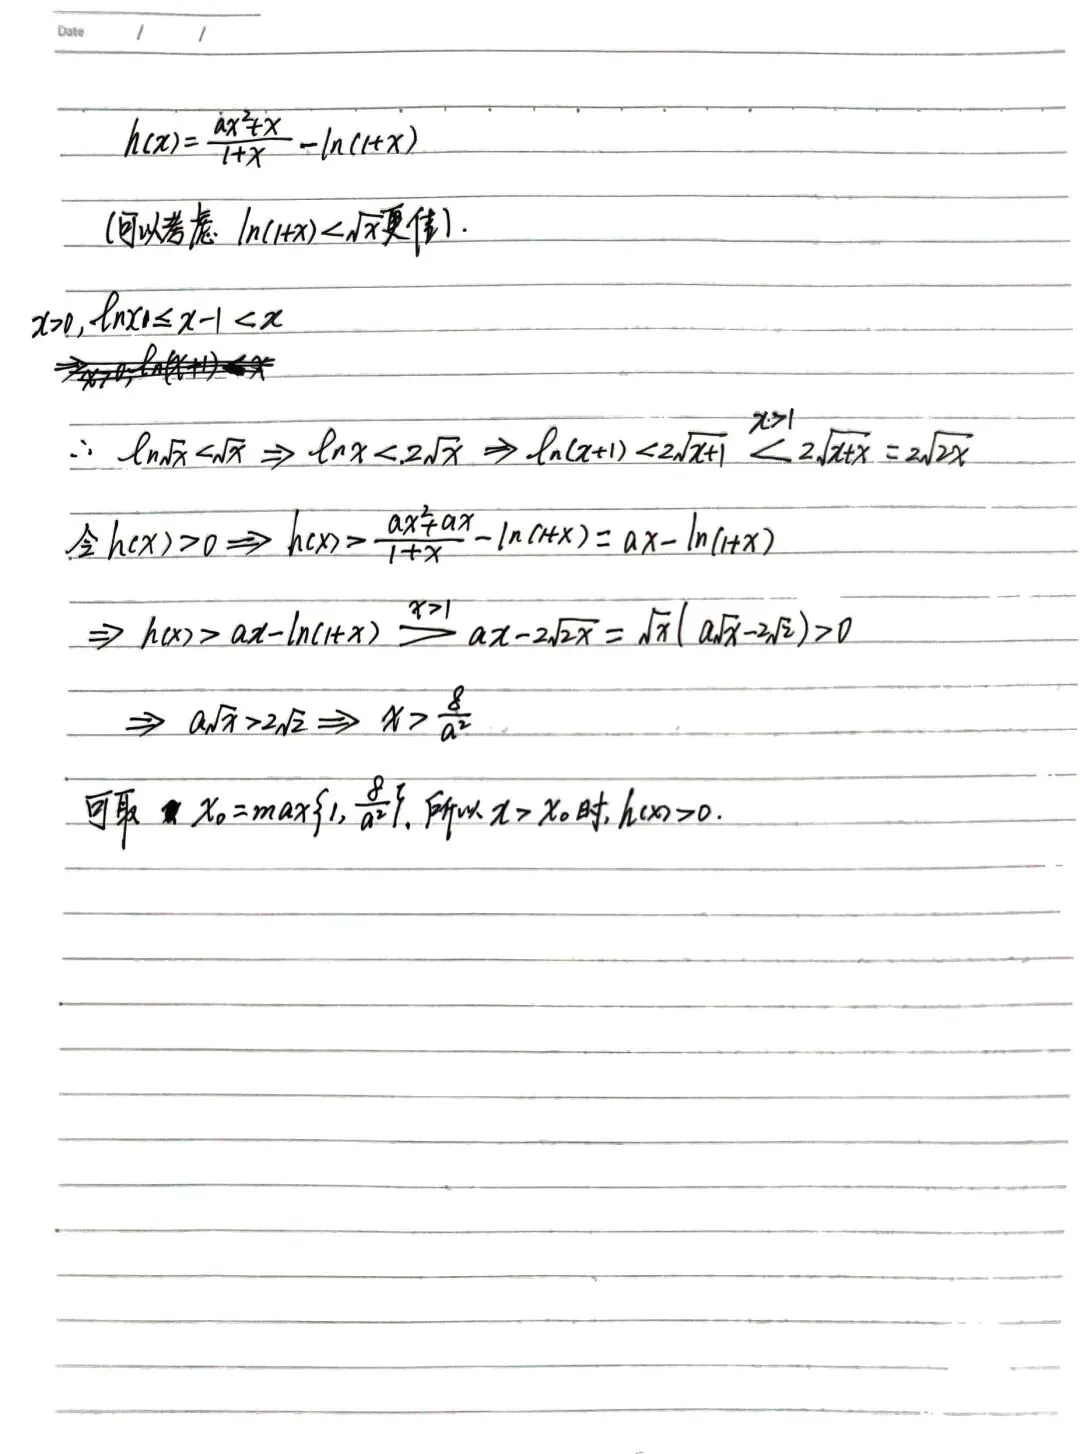 Date / /
h(x)=\frac{ax²+x}{1+x}-ln(1+x)
(可以考虑 ln(1+x)<√x更佳).
x>0, lnx≤x-1<x
∴ ln√x<√x ⇒ lnx<2√x ⇒ ln(x+1)<2√(x+1) \overset{x>1}{<} 2√(x+x)=2√(2x)
令h(x)>0 ⇒ h(x)>\frac{ax²+ax}{1+x}-ln(1+x)=ax-ln(1+x)
⇒ h(x)>ax-ln(1+x) \overset{x>1}{>} ax-2√(2x)=√x(a√x-2√2)>0
⇒ a√x>2√2 ⇒ x>\frac{8}{a²}
可取 x₀=max{1,\frac{8}{a²}}. 所以x>x₀时, h(x)>0.